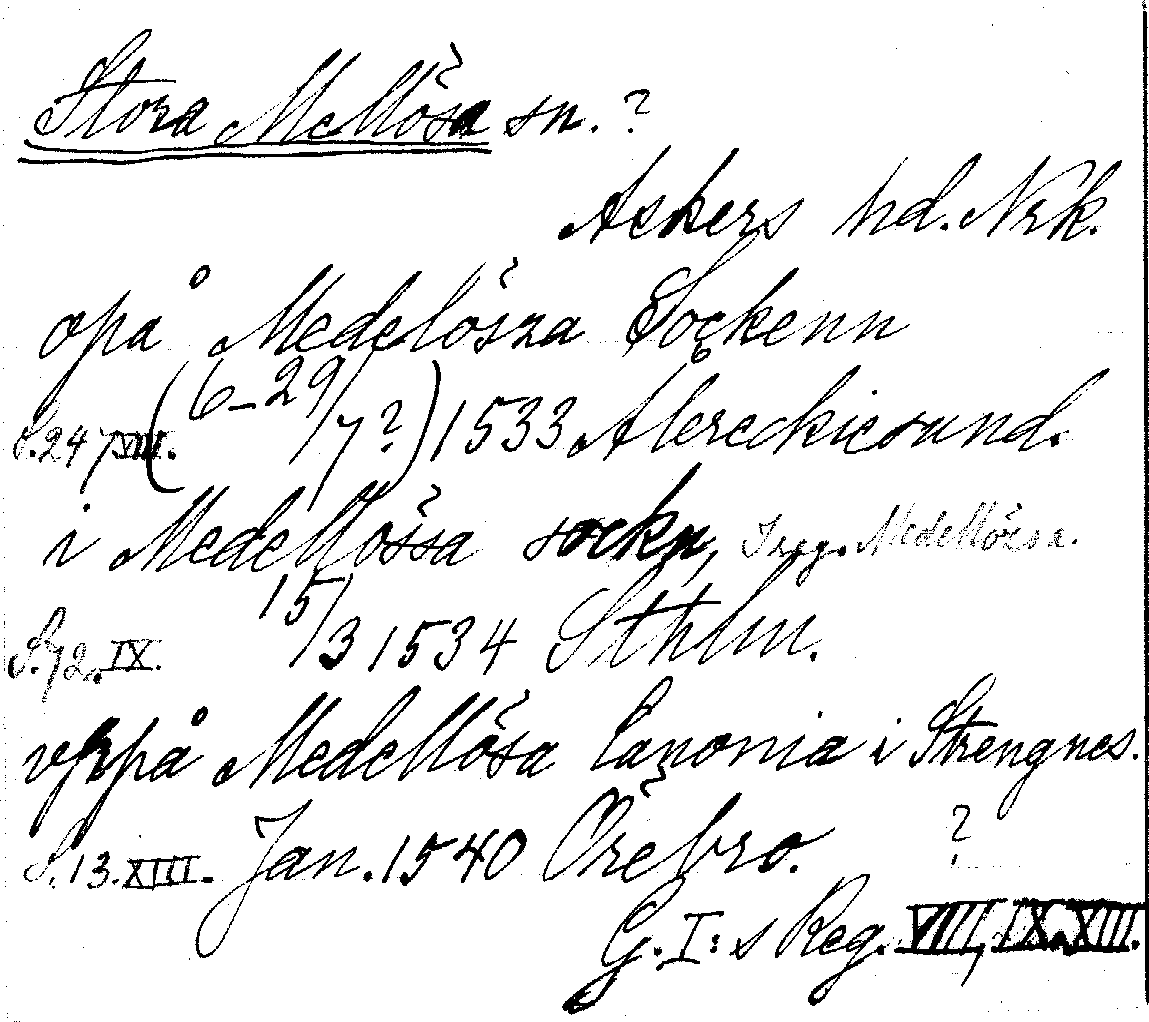 Stora Mellösa sn. ?
Askers hd. Nrk.
opå Medelösza Sockenn
S. 247 VIII. (6-29/7?) 1533 Abreckiesund.
i Medellössa sockn, I reg. Medellözsa.
S. 72. IX. 15/3 1534 Sthlm.
vppå Medellösa Canonia i Strengnes.
S. 13. XIII. Jan. 1540 Örebro. ?
G. I:s Reg. VIII, IX, XIII.